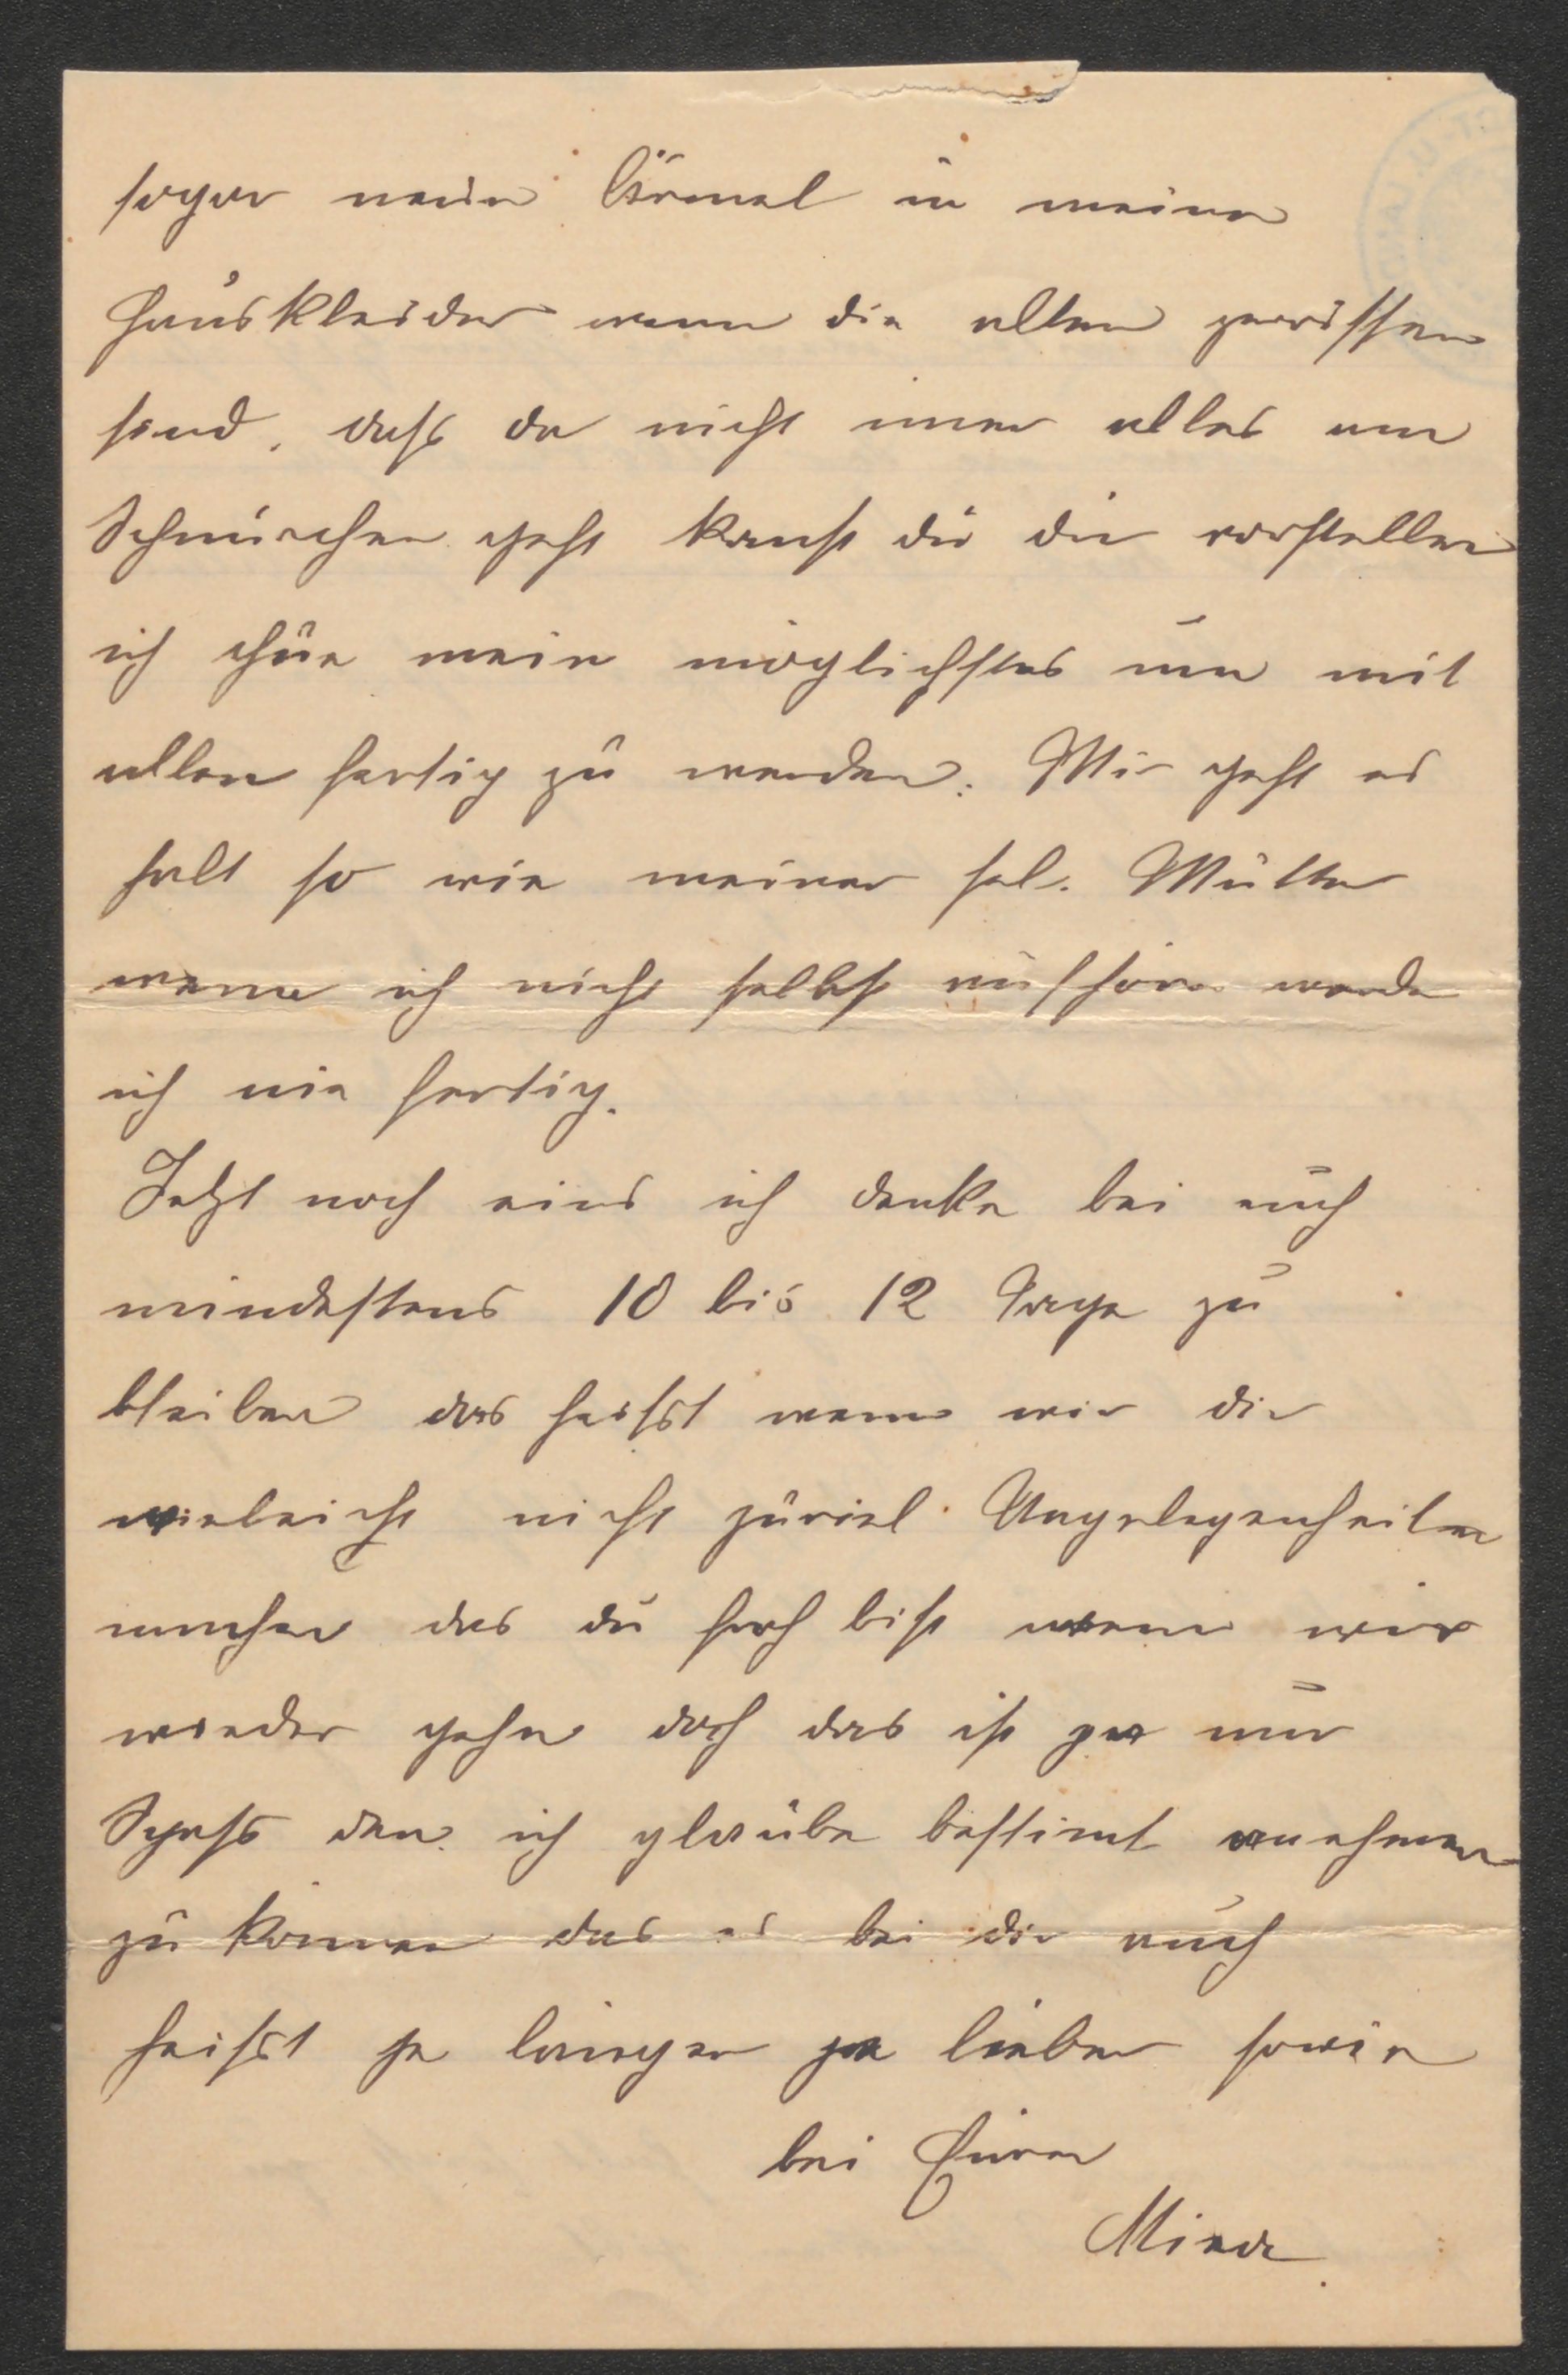 sogar neue Ärmel in meine
Hauskleider wenn die alten zerrissen
sind, dass da nicht imer alles am
Schnürchen geht kanst du dir vorstellen
ich thue mein möglichstes um mit
allen fertig zu werden. Mir geht es
halt so wie meiner sel. Mutter
wenn ich nicht selbst aufhöre werde
ich nie fertig.
Jetzt noch eins ich denke bei euch
mindestens 10 bis 12 Tage zu
bleiben das heisst wenn wir dir
vieleicht nicht zuviel Ungelegenheiten
machen das du froh bist wenn wir
wieder gehn doch das ist ja nur
Spass den ich glaube bestimt anehmen
zu können das es bei dir auch
heisst je länger je lieber sowie
bei Eurer